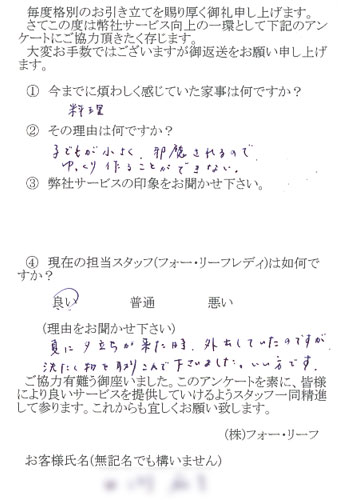 毎度格別のお引き立てを賜り厚く御礼申し上げます。
さてこの度は弊社サービス向上の一環として下記のアン
ケートにご協力頂きたく存じます。
大変お手数ではございますが御返送をお願い申し上げ
ます。
① 今までに煩わしく感じていた家事は何ですか？
料理
② その理由は何ですか？
子どもが小さく、邪魔されるので
ゆっくり作ることができない。
③ 弊社サービスの印象をお聞かせ下さい。
④ 現在の担当スタッフ(フォー・リーフレディ)は如何で
すか？
良い 普通 悪い
(理由をお聞かせ下さい)
夏に夕立ちが来た時、外出していたのですが
洗たく物を取りこんで下さいました。いい方です。
ご協力有難う御座いました。このアンケートを素に、皆様
により良いサービスを提供していけるようスタッフ一同精進
して参ります。これからも宜しくお願い致します。
(株)フォー・リーフ
お客様氏名(無記名でも構いません)